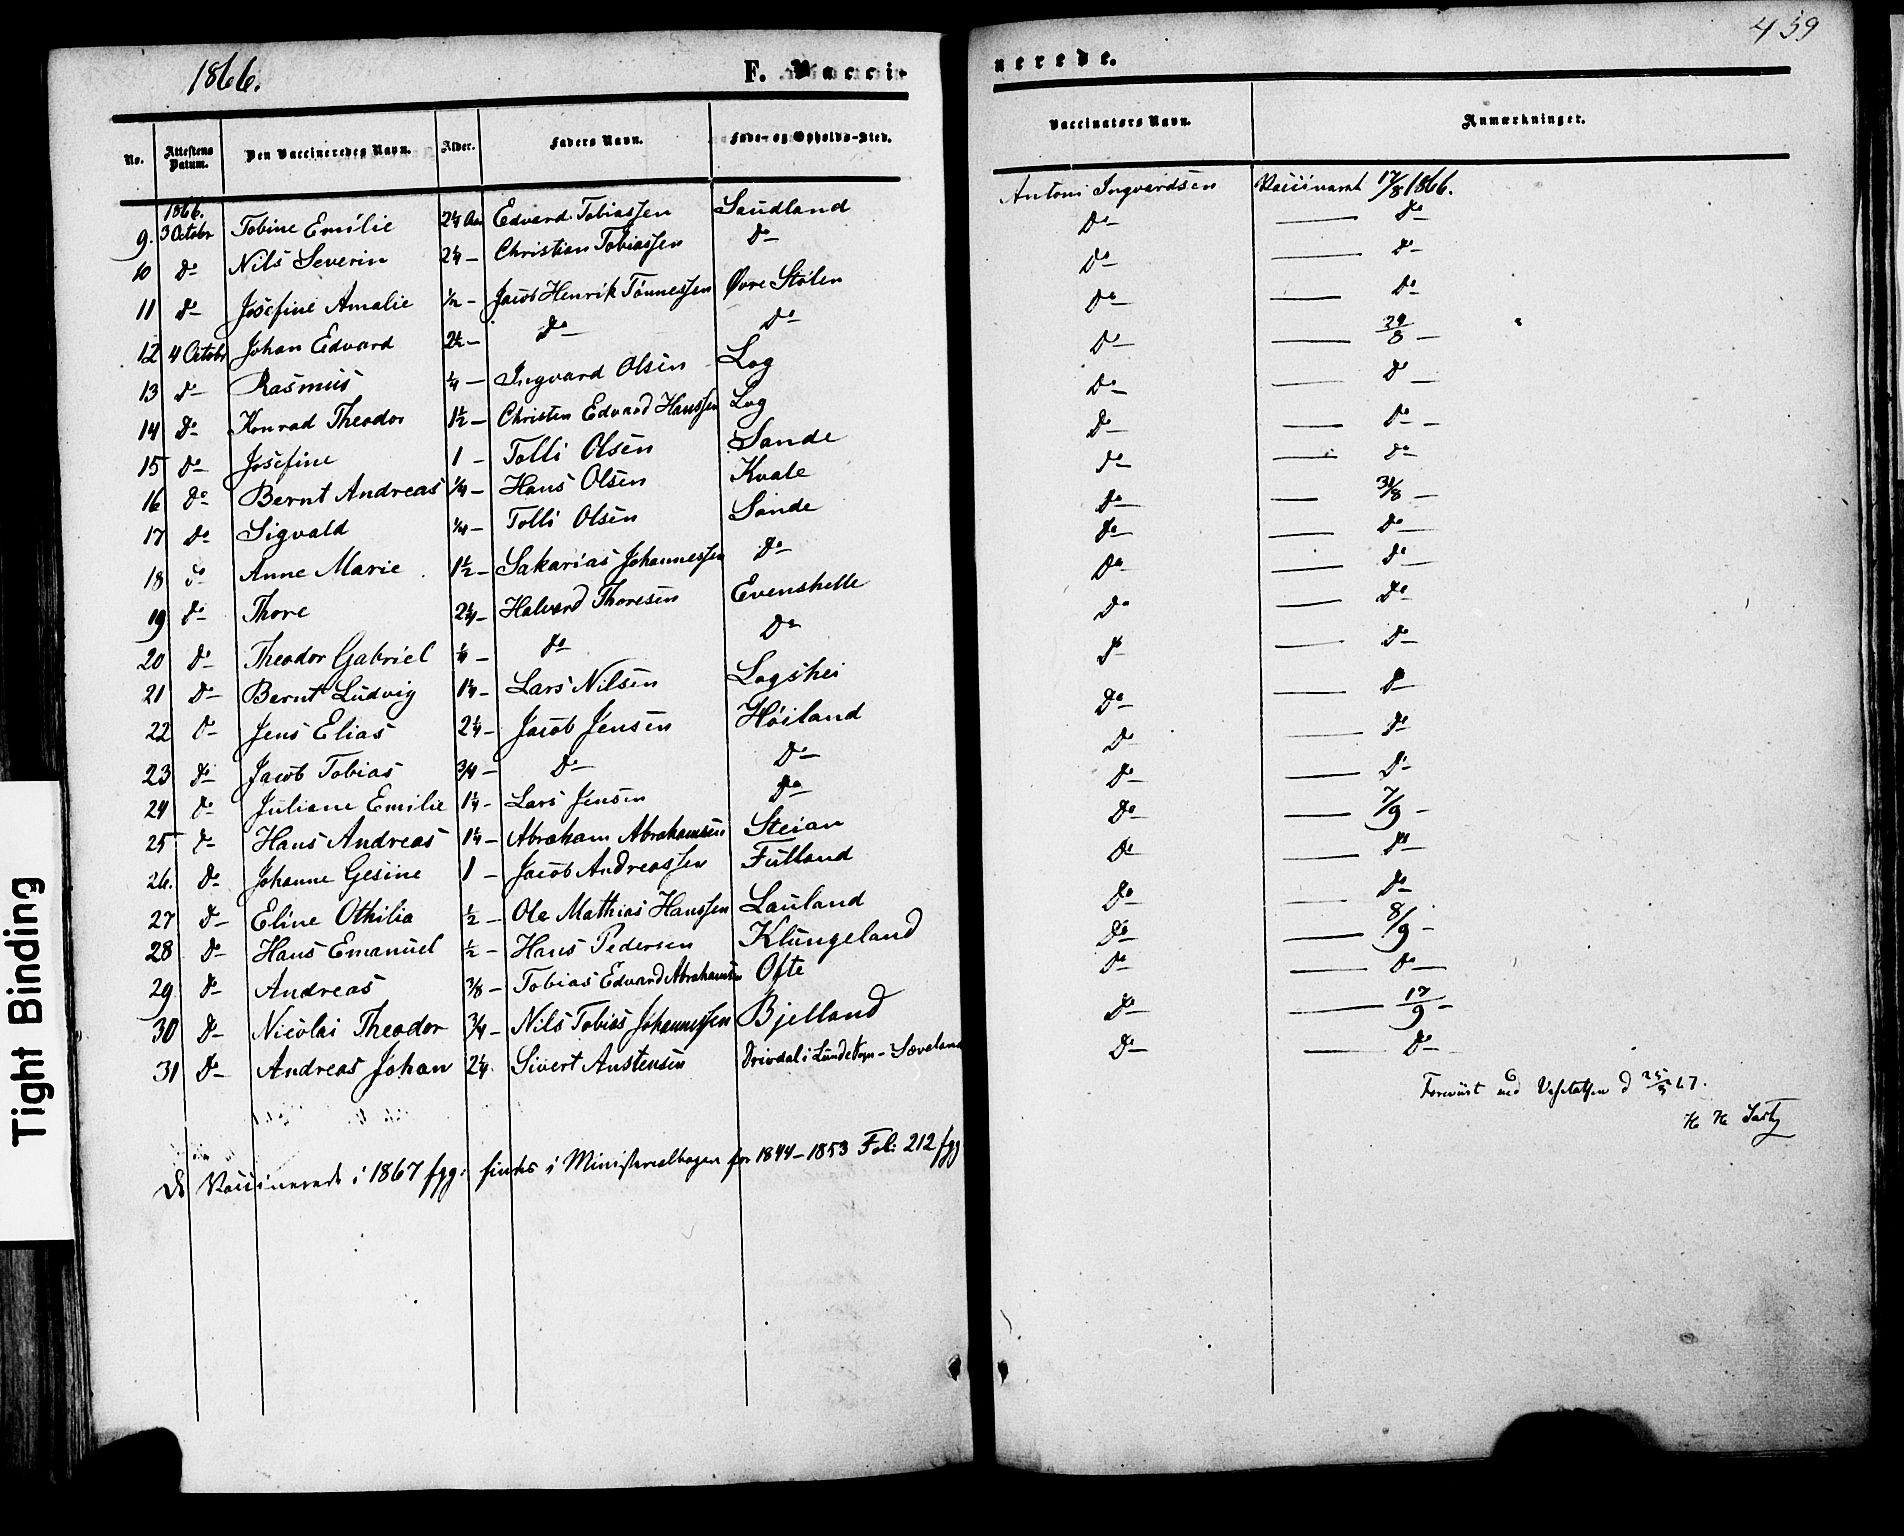 459
1866. F. Vacci-
nerede.
No. Attestens Datum. Den Vaccineredes Navn. Alder. Faders Navn. Føde- og Opholds-Sted. Vaccinators Navn. Anmærkninger.
1866.
9. 3 Octobr Tobine Emilie 2 1/4 Aar Edvard Tobiassen Saudland Antoni Ingvardsen Vaccineret 17/8 1866.
10 Do Nils Severin 2 1/4 - Christian Tobiassen Do Do — Do
11 Do Josefine Amalie 1/2 - Jacob Henrik Tönnessen Øvre Stølen Do — Do
12 4 Octobr Johan Edvard 2 1/2 - Do Do Do — Do
13 Do Rasmus 1/4 - Ingvard Olsen Log Do — 29/8 -
14 Do Konrad Theodor 1 1/2 - Christen Edvard Hanssen Log Do — Do -
15 Do Josefine 1 - Tolli Olsen Sande Do — Do -
16 Do Bernt Andreas 1/4 - Hans Olsen Kvale Do — Do
17 Do Sigvald 1/4 - Tolli Olsen Sande Do — 31/8 -
18 Do Anne Marie 1 1/2 - Sakarias Johannessen Do Do — Do
19 Do Thore 2 1/4 - Halvard Thoresen Evenshelle Do — Do
20 Do Theodor Gabriel 1/4 - Do Do Do — Do
21 Do Bernt Ludvig 1 1/4 - Lars Nilsen Logshei Do — Do
22 Do Jens Elias 2 1/4 - Jacob Jensen Höiland Do — Do
23 Do Jacob Tobias 3/4 - Do Do Do — Do
24 Do Juliane Emilie 1 1/4 - Lars Jensen Do Do — Do
25 Do Hans Andreas 1 1/4 - Abraham Abrahamsen Steian Do — 7/9 -
26. Do Johanne Gesine 1 - Jacob Andreassen Fulland Do — Do
27 Do Eline Othilia 1/2 - Ole Mathias Hanssen Lauland Do — Do
28 Do Hans Emanuel 1/2 - Hans Pedersen Klungeland Do — 8/9 -
29 Do Andreas 3/8 - Tobias Edvard Abrahamsen Ofte Do — Do
30 Do Nicolai Theodor 3/4 - Nils Tobias Johannessen Bjelland Do — 17/9 -
31 Do Andreas Johan 2 1/4 Sivert Austensen Drivdal i Lunde Sogn - Sæveland Do — Do
Foreviist ved Visitatsen d
De Vaccinerede i 1867 fgg: findes i Ministerialbogen for 1844-1853 Fol: 212 fgg
Tight Binding